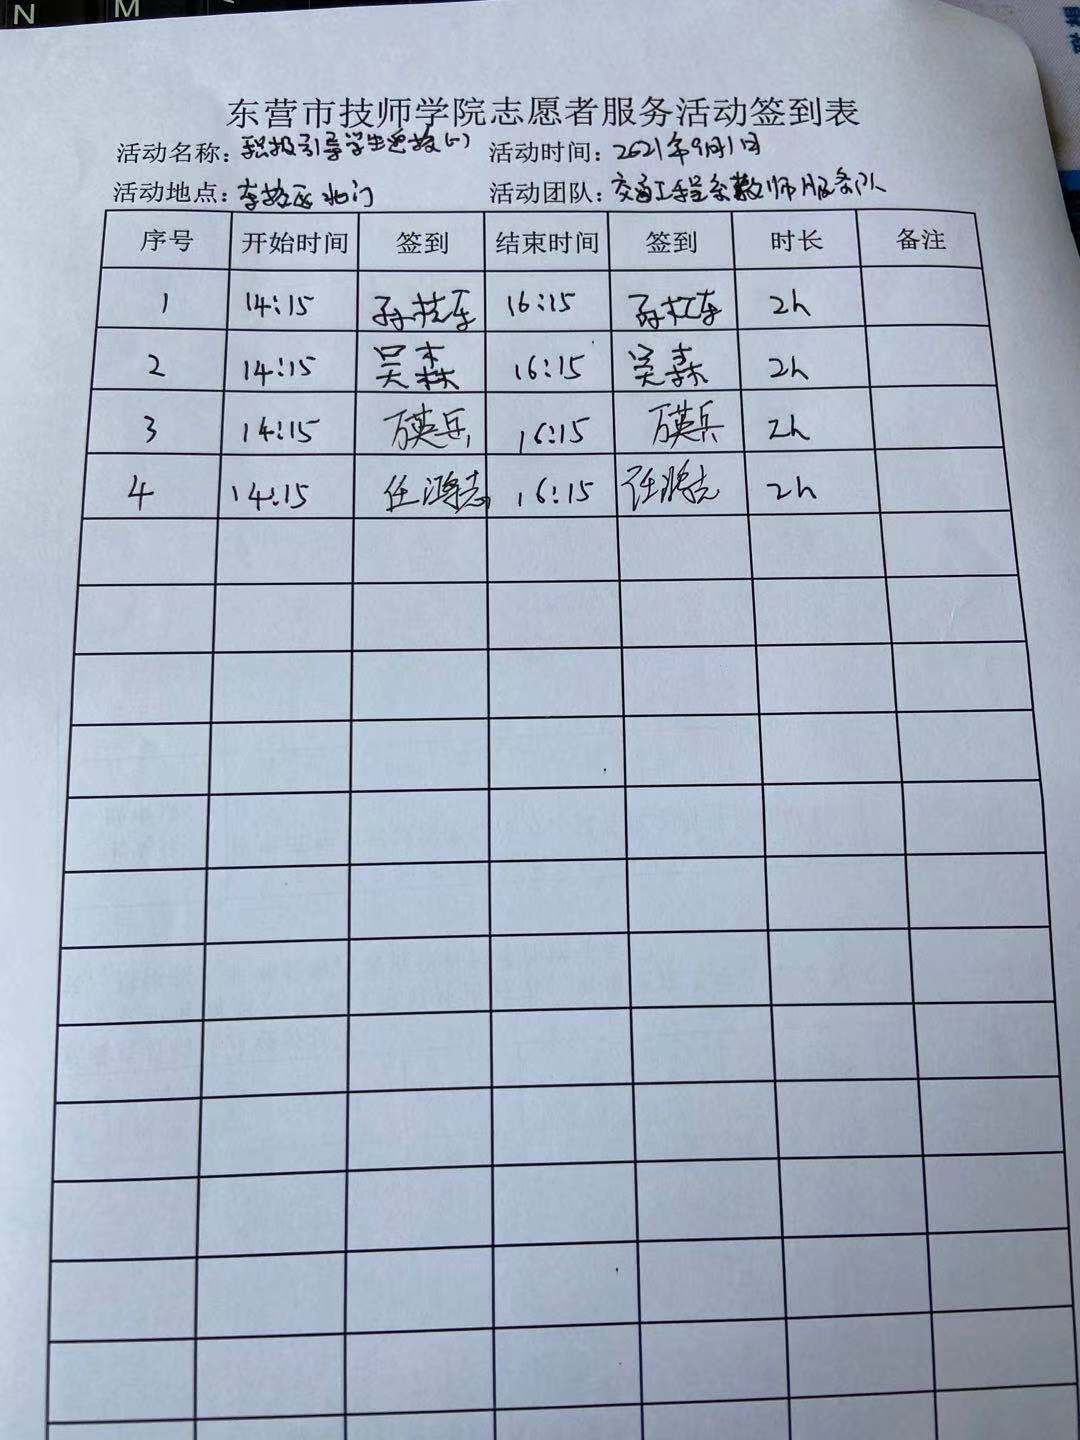 N M
东营市技师学院志愿者服务活动签到表
活动名称：积极引导学生返校(一) 活动时间：2021年9月1日
活动地点：东校区北门 活动团队：交通工程系教师服务队
序号 开始时间 签到 结束时间 签到 时长 备注
1 14:15 16:15 2h
2 14:15 吴森 16:15 吴森 2h
3 14:15 万英兵 16:15 万英兵 2h
4 14:15 任鸿志 16:15 任鸿志 2h